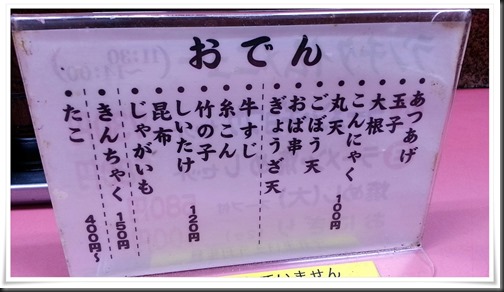 おでん
・あつあげ
・玉子
・大根
・こんにゃく
・丸天
100円
・ごぼう天
・おば串
・ぎょうざ天
・牛すじ
・糸こん
・竹の子
120円
・しいたけ
・昆布
・じゃがいも
150円
・きんちゃく
・たこ
400円~
いません